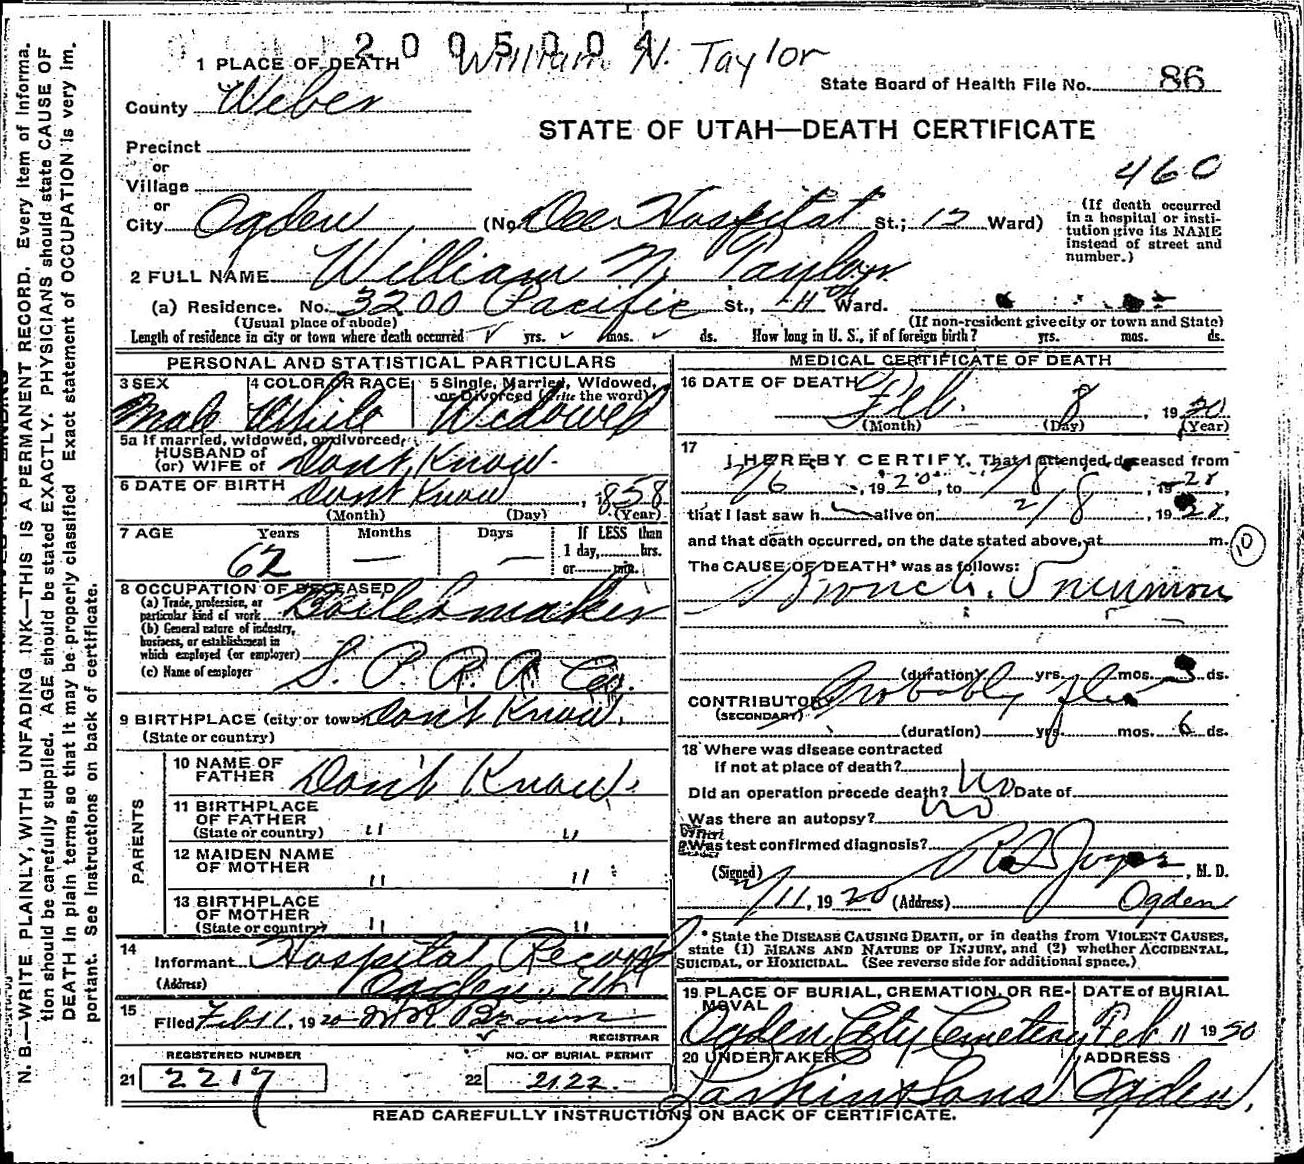 2005004
William N. Taylor
1 PLACE OF DEATH
State Board of Health File No. 86
County Weber
STATE OF UTAH—DEATH CERTIFICATE
Precinct
or
Village
460
or
City Ogden (No. Dee Hospital St.; 12 Ward)
(If death occurred in a hospital or institution give its NAME instead of street and number.)
2 FULL NAME William N. Taylor
(a) Residence. No. 3200 Pacific St., 11 Ward.
(Usual place of abode) (If non-resident give city or town and State)
Length of residence in city or town where death occurred yrs. mos. ds. How long in U. S., if of foreign birth? yrs. mos. ds.
PERSONAL AND STATISTICAL PARTICULARS
3 SEX 4 COLOR OR RACE 5 Single, Married, Widowed, or Divorced (write the word)
Male White Widowed
5a If married, widowed, or divorced,
HUSBAND of
(or) WIFE of Dont Know.
6 DATE OF BIRTH Dont Know, 1858
(Month) (Day) (Year)
7 AGE Years Months Days If LESS than
1 day, hrs.
or min.
62 — —
8 OCCUPATION OF DECEASED
(a) Trade, profession, or
particular kind of work Boilermaker
(b) General nature of industry,
business, or establishment in
which employed (or employer)
(c) Name of employer S. P. R. R. Co.
9 BIRTHPLACE (city or town) Dont Know.
(State or country)
PARENTS
10 NAME OF
FATHER Don't Know.
11 BIRTHPLACE
OF FATHER
(State or country) " "
12 MAIDEN NAME
OF MOTHER " "
13 BIRTHPLACE
OF MOTHER
(State or country) " "
14
Informant Hospital Record
(Address) Ogden, Ut
15
Filed Feb 11, 1920 Brown
REGISTRAR
REGISTERED NUMBER NO. OF BURIAL PERMIT
21 2217 22 2122.
MEDICAL CERTIFICATE OF DEATH
16 DATE OF DEATH
Feb. 8, 1920
(Month) (Day) (Year)
17
I HEREBY CERTIFY, That I attended deceased from
2/6, 1920, to 2/8, 1920
that I last saw h alive on 2/8, 1920,
and that death occurred, on the date stated above, at m.
10
The CAUSE OF DEATH* was as follows:
Bronch. Pneumonia
(duration) yrs. mos. 3 ds.
CONTRIBUTORY Probably flu
(SECONDARY)
(duration) yrs. mos. 6 ds.
18 Where was disease contracted
If not at place of death?
Did an operation precede death? No Date of
Was there an autopsy? No
What test confirmed diagnosis?
(Signed) Joyce, M. D.
2/11, 1920 (Address) Ogden
* State the DISEASE CAUSING DEATH, or in deaths from VIOLENT CAUSES,
state (1) MEANS AND NATURE OF INJURY, and (2) whether ACCIDENTAL,
SUICIDAL, or HOMICIDAL. (See reverse side for additional space.)
19 PLACE OF BURIAL, CREMATION, OR REMOVAL DATE of BURIAL
Ogden City Cemetery Feb 11 1920
20 UNDERTAKER ADDRESS
Larkin & Sons Ogden,
READ CAREFULLY INSTRUCTIONS ON BACK OF CERTIFICATE.
N. B.—WRITE PLAINLY, WITH UNFADING INK—THIS IS A PERMANENT RECORD. Every item of informa-
tion should be carefully supplied. AGE should be stated EXACTLY. PHYSICIANS should state CAUSE OF
DEATH in plain terms, so that it may be properly classified. Exact statement of OCCUPATION is very im-
portant. See instructions on back of certificate.